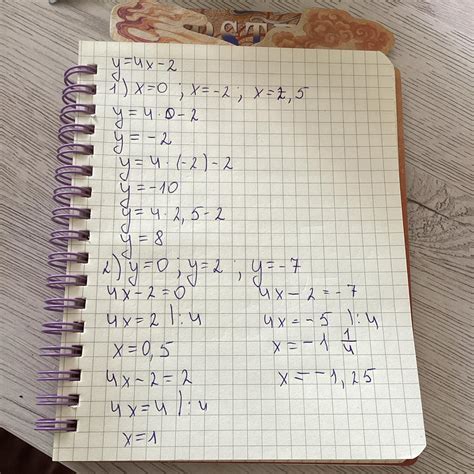 y=4x-2
1) x=0 ; x=-2 ; x=2,5
y=4·0-2
y=-2
y=4·(-2)-2
y=-10
y=4·2,5-2
y=8
2) y=0 ; y=2 ; y=-7
4x-2=0
4x=2 |:4
x=0,5
4x-2=2
4x=4 |:4
x=1
4x-2=-7
4x=-5 |:4
x=-1 1/4
x=-1,25